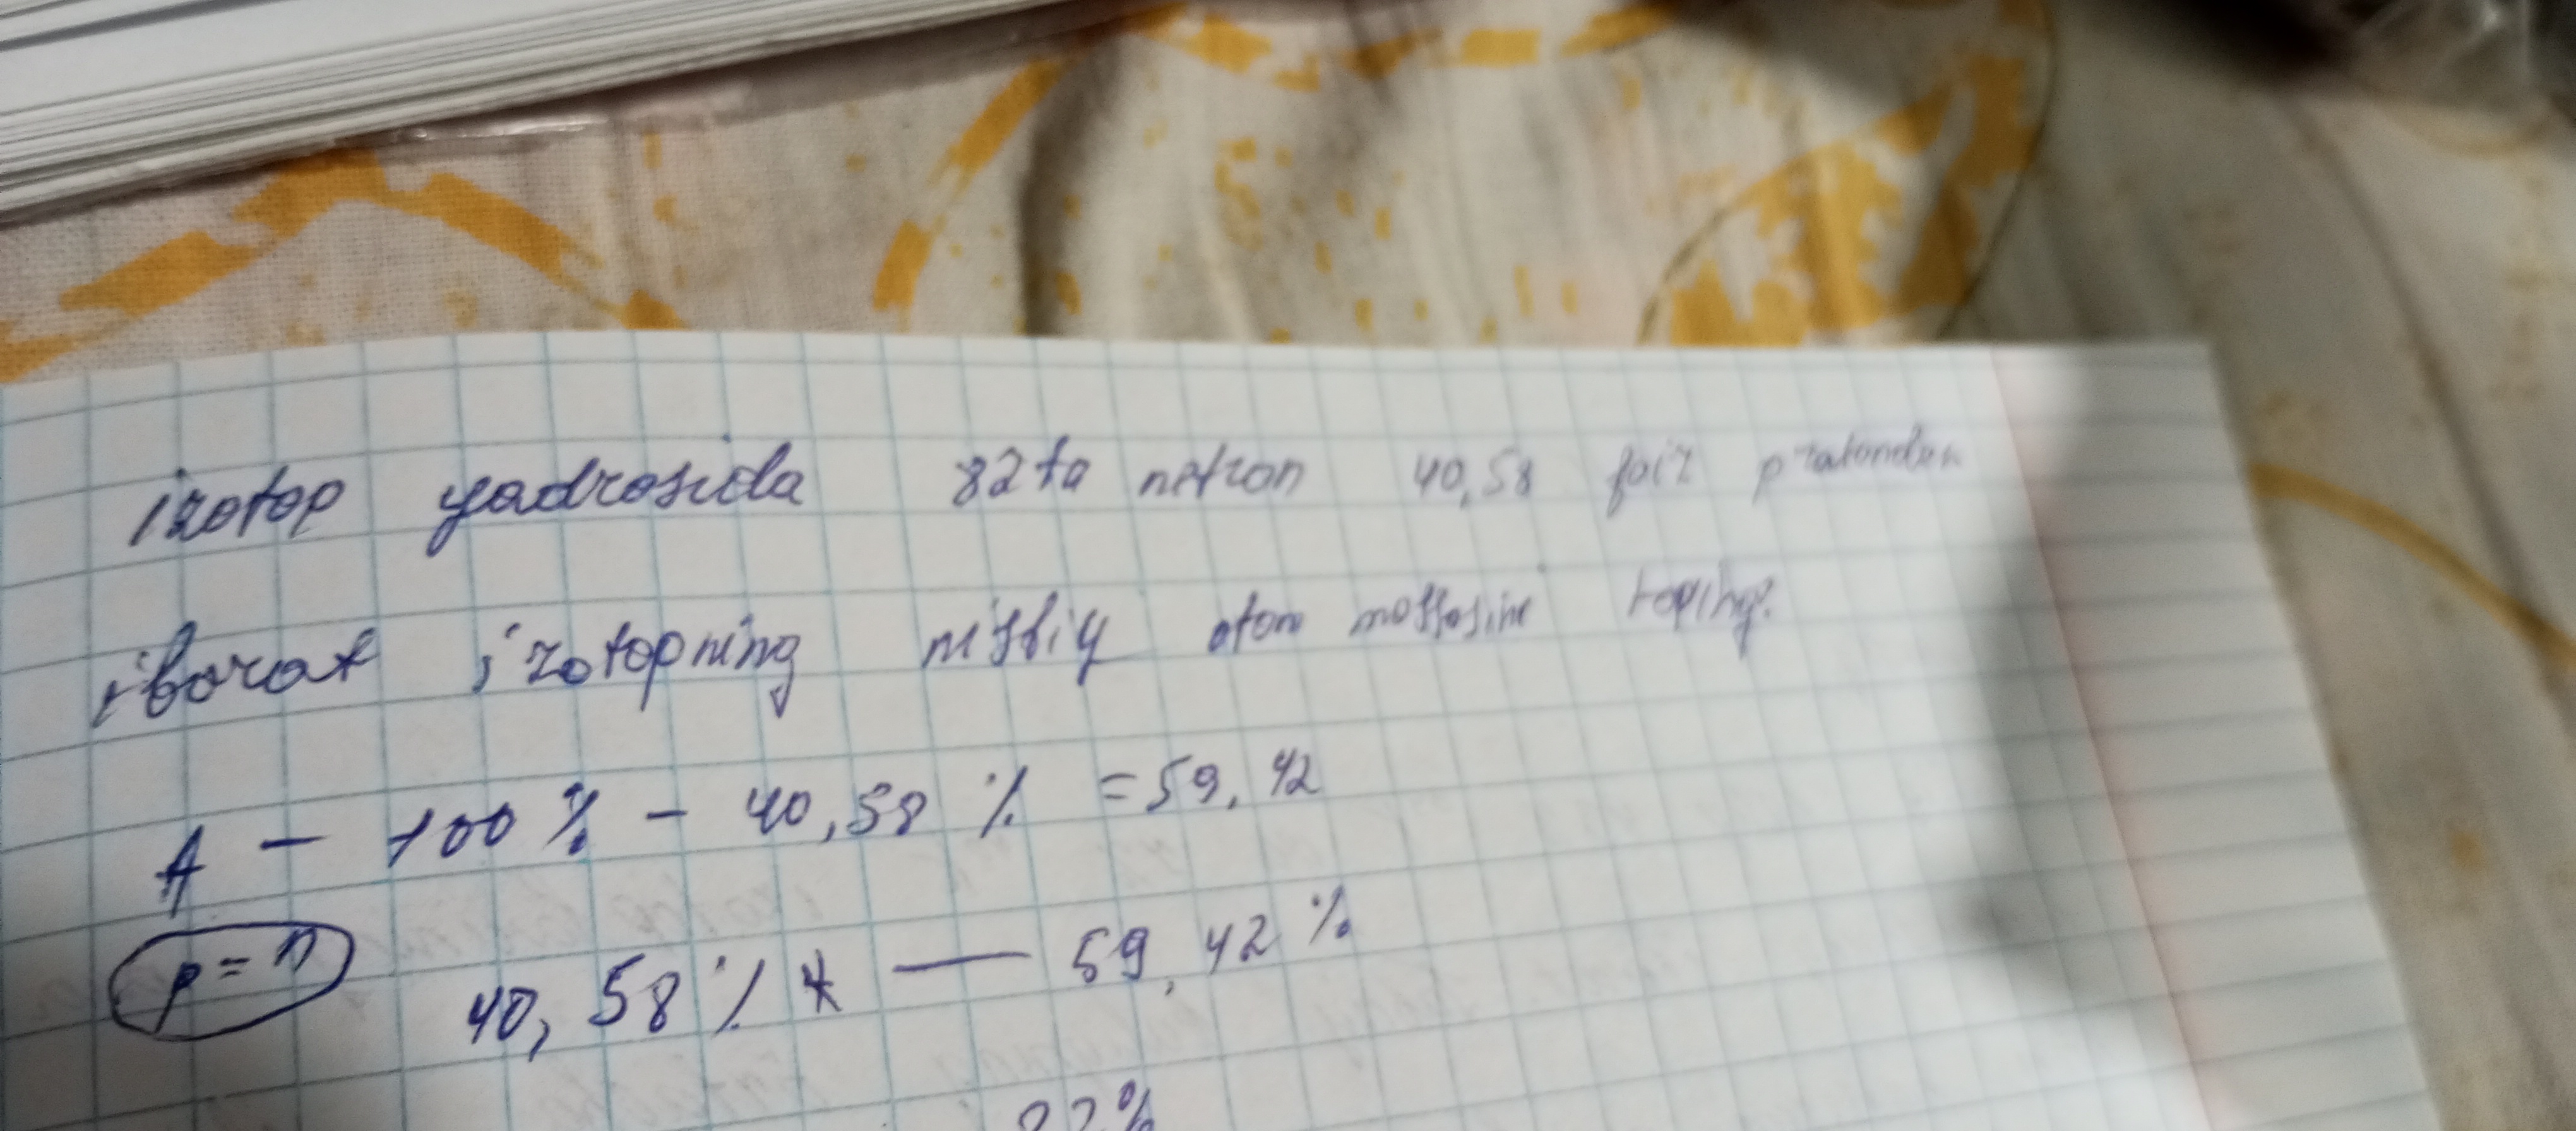 izotop yadrosida 82ta nitron 40,58 foiz pratondan
iborat izotopning nisbiy atom massasini toping?
A - 100% - 40,58 % = 59,42
p = n
40,58% x — 59,42%
82%